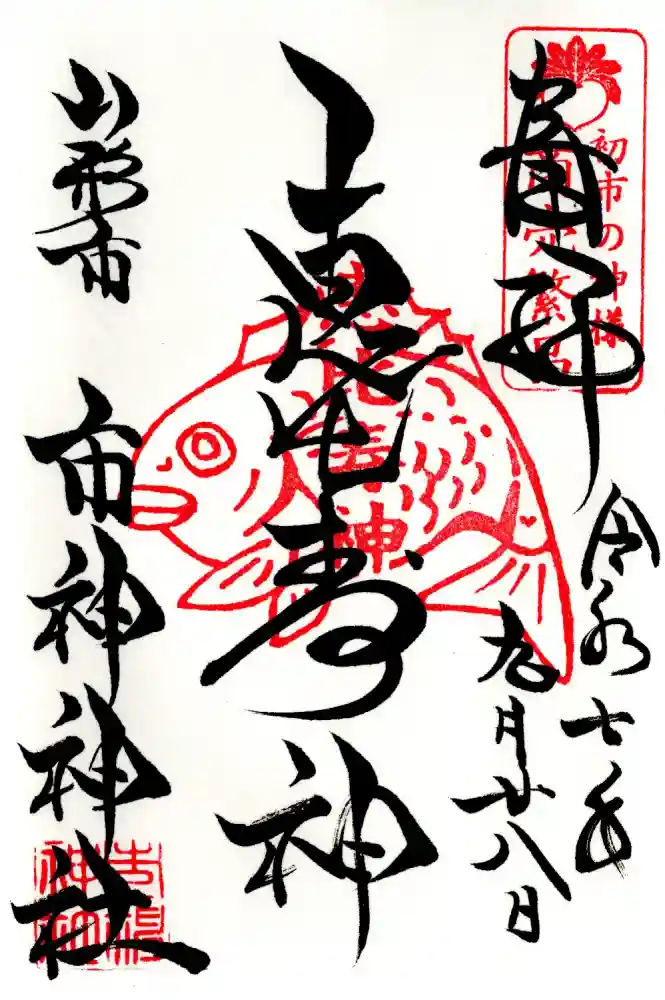 奉拝
初市の神様
商売繁昌
令和七年
九月廿八日
恵比寿神
恵比寿神
山形市
市神神社
市神
神社